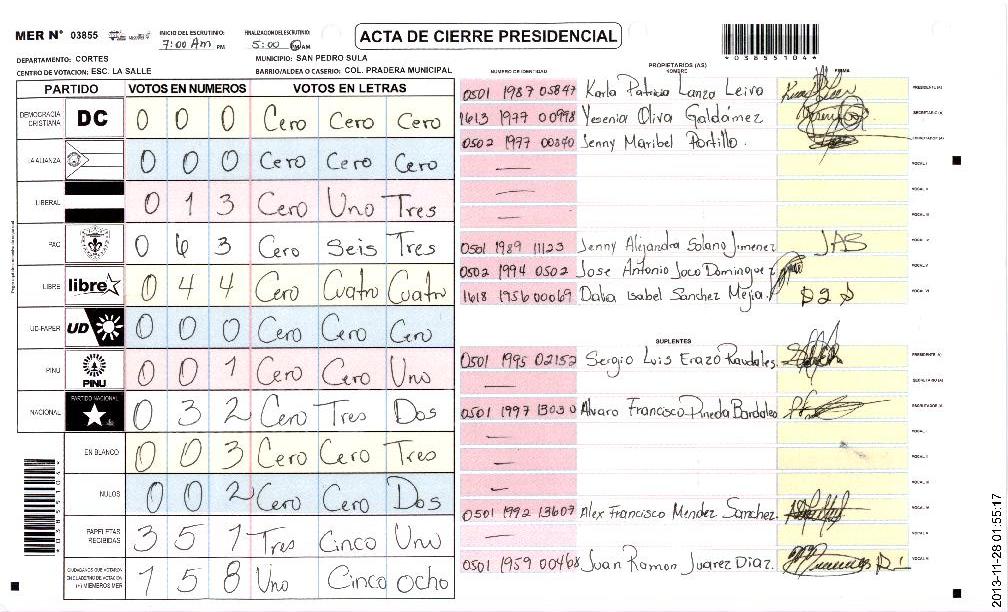 MER N° 03855
INICIO DEL ESCRUTINIO: 7:00 Am PM
FINALIZACION DEL ESCRUTINIO: 5:00 PM AM
ACTA DE CIERRE PRESIDENCIAL
*03855104*
DEPARTAMENTO: CORTES
MUNICIPIO: SAN PEDRO SULA
CENTRO DE VOTACION: ESC. LA SALLE
BARRIO/ALDEA O CASERIO: COL. PRADERA MUNICIPAL
PARTIDO VOTOS EN NUMEROS VOTOS EN LETRAS
DEMOCRACIA CRISTIANA DC 0 0 0 Cero Cero Cero
LA ALIANZA 0 0 0 Cero Cero Cero
LIBERAL 0 1 3 Cero Uno Tres
PAC 0 6 3 Cero Seis Tres
LIBRE libre 0 4 4 Cero Cuatro Cuatro
UD-FAPER UD 0 0 0 Cero Cero Cero
PINU PINU 0 0 1 Cero Cero Uno
NACIONAL PARTIDO NACIONAL 0 3 2 Cero Tres Dos
EN BLANCO 0 0 3 Cero Cero Tres
NULOS 0 0 2 Cero Cero Dos
PAPELETAS RECIBIDAS 3 5 1 Tres Cinco Uno
CIUDADANOS QUE VOTARON EN CUADERNO DE VOTACION (+) MIEMBROS MER 1 5 8 Uno Cinco ocho
*03855104*
PROPIETARIOS (AS)
NUMERO DE IDENTIDAD NOMBRE FIRMA
0501 1987 05847 Karla Patricia Lanza Leiva PRESIDENTE (A)
1613 1977 00998 Yesenia Oliva Galdámez SECRETARIO (A)
0502 1977 00840 Jenny Maribel Portillo. ESCRUTADOR (A)
— VOCAL I
— VOCAL II
— VOCAL III
0501 1989 11123 Jenny Alejandra Solano Jimenez JAS VOCAL IV
0502 1994 0502 Jose Antonio Joco Dominguez VOCAL V
1618 1956 00069 Dalia Isabel Sanchez Mejia. VOCAL VI
SUPLENTES
0501 1995 02152 Sergio Luis Erazo Raudales. PRESIDENTE (A)
— SECRETARIO (A)
0501 1997 13030 Alvaro Francisco Pineda Bardales ESCRUTADOR (A)
— VOCAL I
— VOCAL II
— VOCAL III
0501 1992 13607 Alex Francisco Mendez Sanchez. VOCAL IV
— VOCAL V
0501 1959 00468 Juan Ramon Juarez Diaz. VOCAL VI
2013-11-28 01:55:17